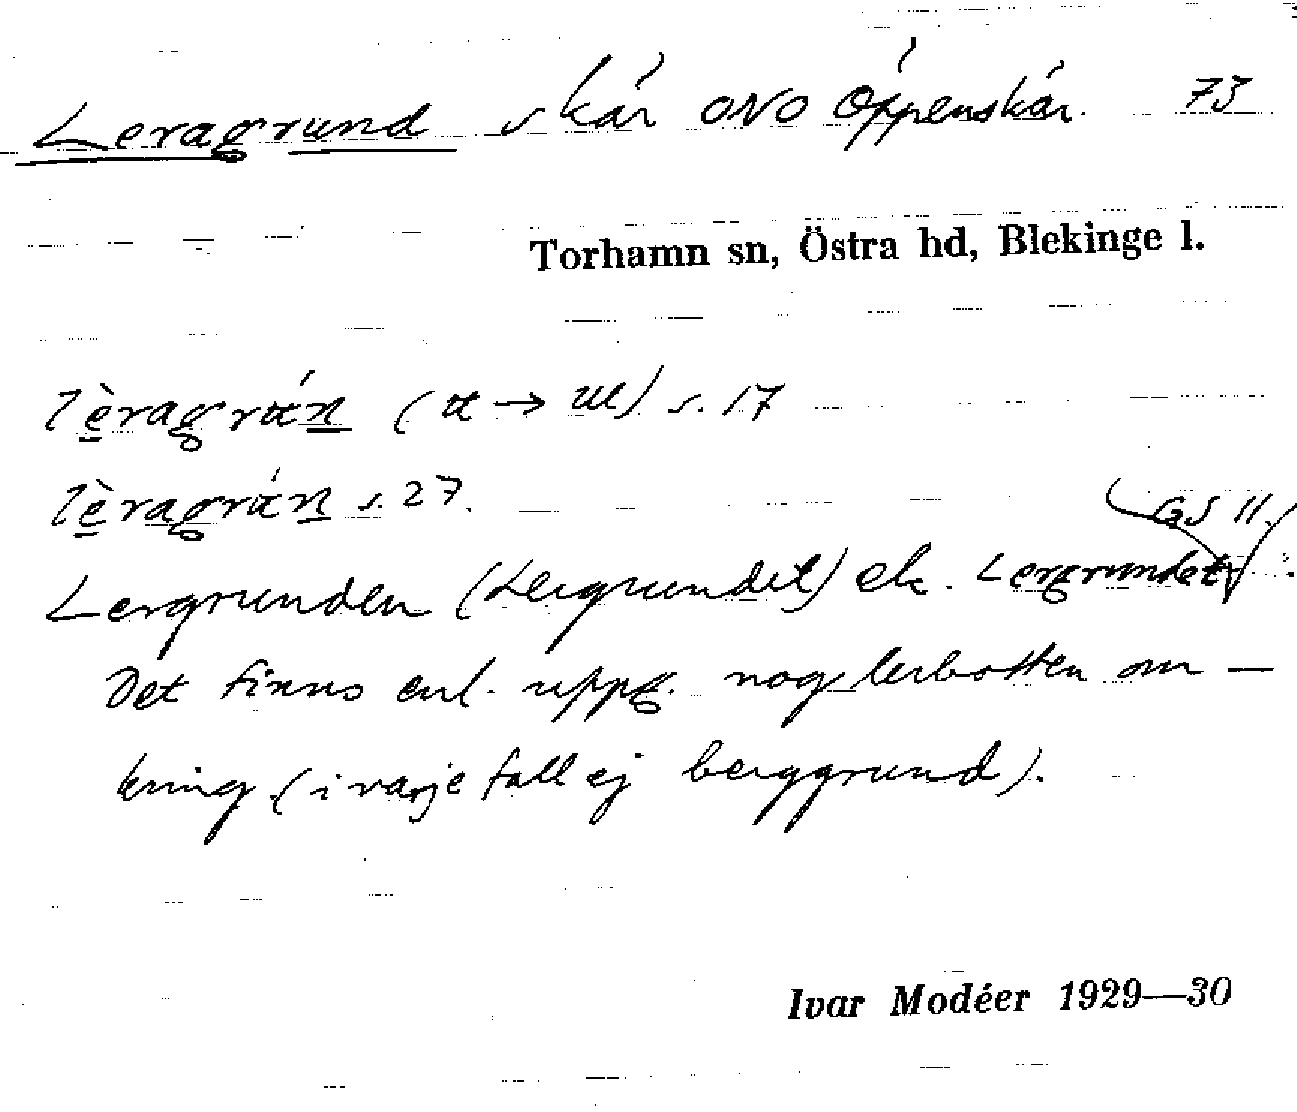 Leragrund skär ONO Öppenskär. 73
Torhamn sn, Östra hd, Blekinge l.
s. 17
s. 27.
GS II.
Lergrunden (Lergrundet) ek. Lergrundet
Det finns enl. uppg. nog lerbotten om-
kring (i varje fall ej berggrund).
Ivar Modéer 1929—30